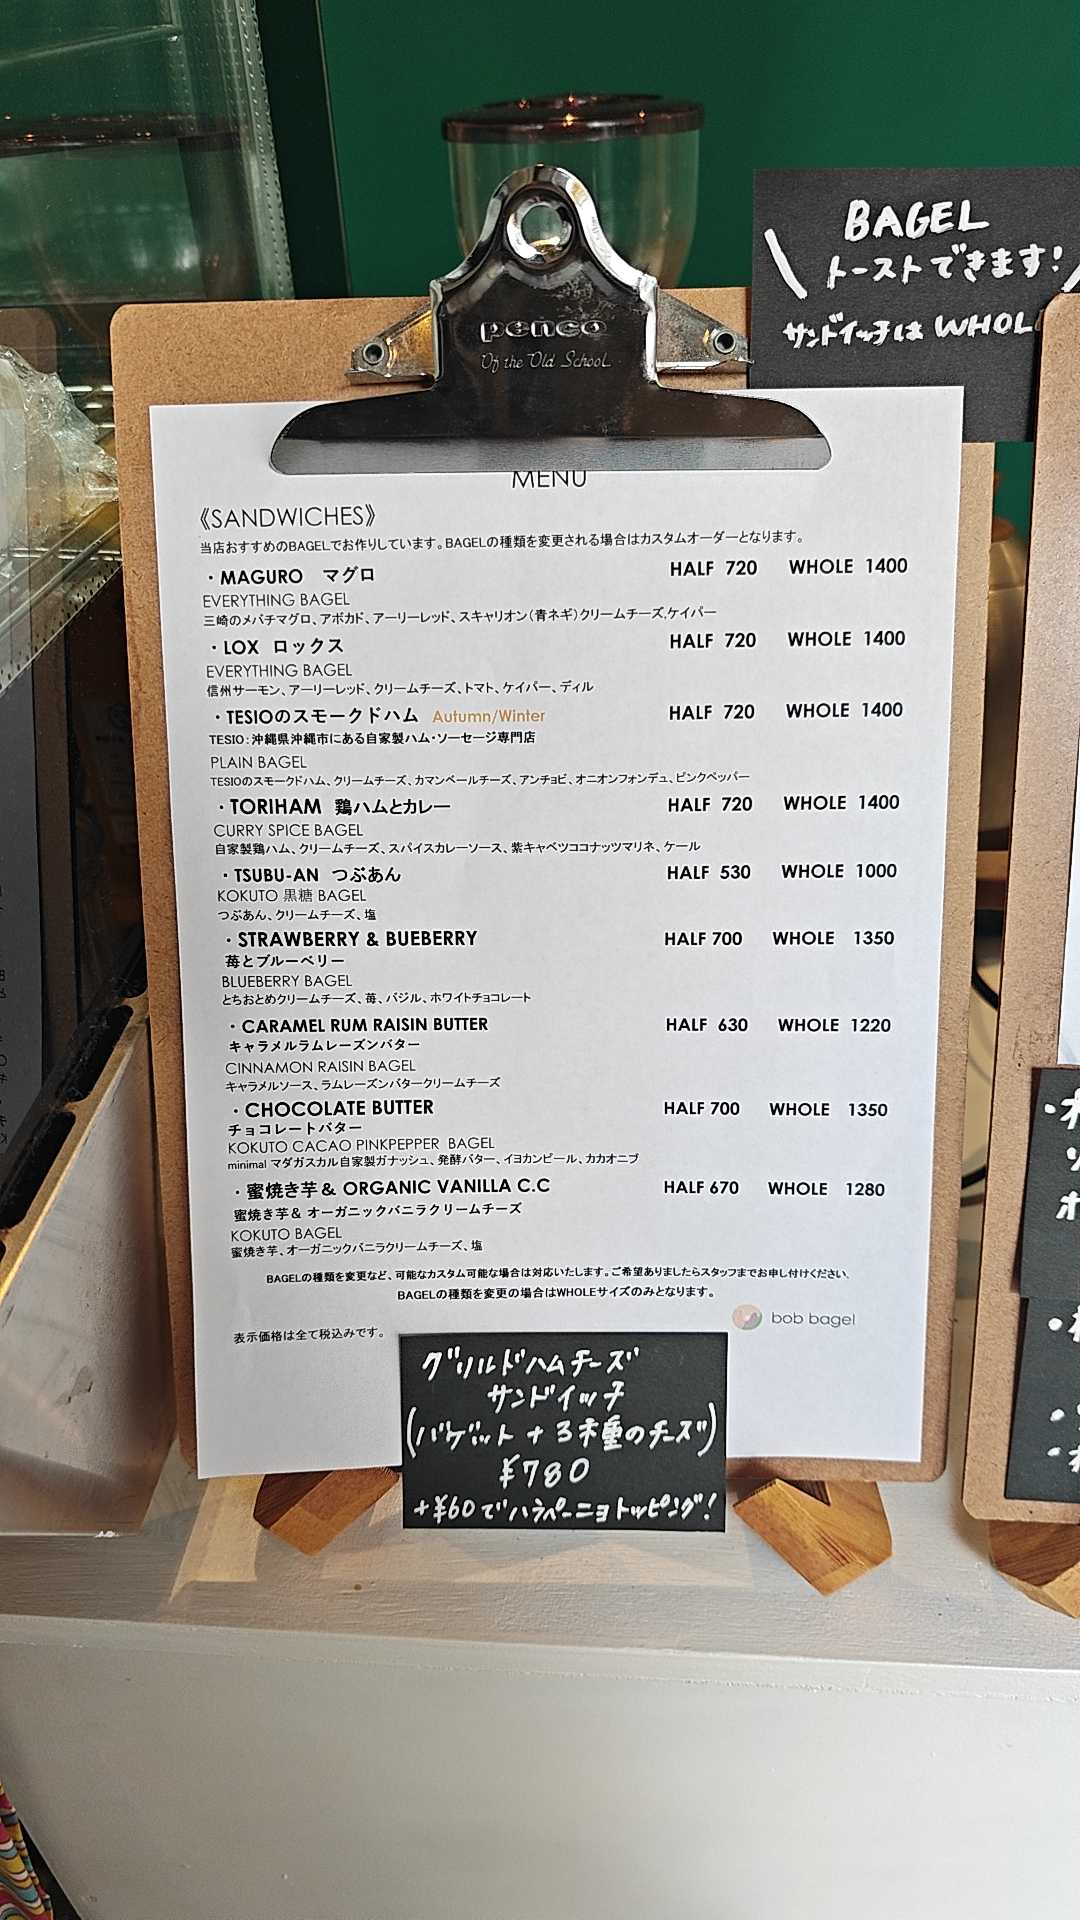 BAGEL
トーストできます!
サンドイッチは WHOL
penco
Of the Old School
MENU
《SANDWICHES》
当店おすすめのBAGELでお作りしています。BAGELの種類を変更される場合はカスタムオーダーとなります。
・MAGURO マグロ HALF 720 WHOLE 1400
EVERYTHING BAGEL
三崎のメバチマグロ、アボカド、アーリーレッド、スキャリオン(青ネギ)クリームチーズ,ケイパー
・LOX ロックス HALF 720 WHOLE 1400
EVERYTHING BAGEL
信州サーモン、アーリーレッド、クリームチーズ、トマト、ケイパー、ディル
・TESIOのスモークドハム Autumn/Winter HALF 720 WHOLE 1400
TESIO：沖縄県沖縄市にある自家製ハム・ソーセージ専門店
PLAIN BAGEL
TESIOのスモークドハム、クリームチーズ、カマンベールチーズ、アンチョビ、オニオンフォンデュ、ピンクペッパー
・TORIHAM 鶏ハムとカレー HALF 720 WHOLE 1400
CURRY SPICE BAGEL
自家製鶏ハム、クリームチーズ、スパイスカレーソース、紫キャベツココナッツマリネ、ケール
・TSUBU-AN つぶあん HALF 530 WHOLE 1000
KOKUTO 黒糖 BAGEL
つぶあん、クリームチーズ、塩
・STRAWBERRY & BUEBERRY HALF 700 WHOLE 1350
苺とブルーベリー
BLUEBERRY BAGEL
とちおとめクリームチーズ、苺、バジル、ホワイトチョコレート
・CARAMEL RUM RAISIN BUTTER HALF 630 WHOLE 1220
キャラメルラムレーズンバター
CINNAMON RAISIN BAGEL
キャラメルソース、ラムレーズンバタークリームチーズ
・CHOCOLATE BUTTER HALF 700 WHOLE 1350
チョコレートバター
KOKUTO CACAO PINKPEPPER BAGEL
minimal マダガスカル自家製ガナッシュ、発酵バター、イヨカンピール、カカオニブ
・蜜焼き芋& ORGANIC VANILLA C.C HALF 670 WHOLE 1280
蜜焼き芋& オーガニックバニラクリームチーズ
KOKUTO BAGEL
蜜焼き芋、オーガニックバニラクリームチーズ、塩
BAGELの種類を変更など、可能なカスタム可能な場合は対応いたします。ご希望ありましたらスタッフまでお申し付けください。
BAGELの種類を変更の場合はWHOLEサイズのみとなります。
bob bagel
表示価格は全て税込みです。
グリルドハムチーズ
サンドイッチ
(バゲット+3種のチーズ)
¥780
+¥60でハラペーニョトッピング!